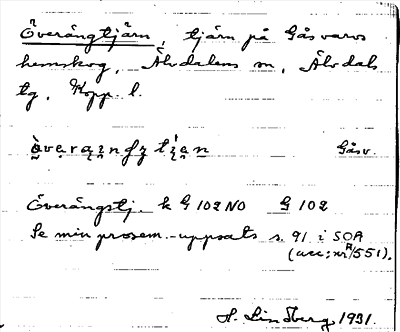 Överängtjärn, tjärn på Gåsvarvs
hemskog, Älvdalens sn, Älvdals
tg, Kopp. l.
Gåsv.
Överängstj. k G 102 NO G 102
Se min prosem.-uppsats s. 91 i SOA
(acc: nr R/551).
H. Lindberg 1931.